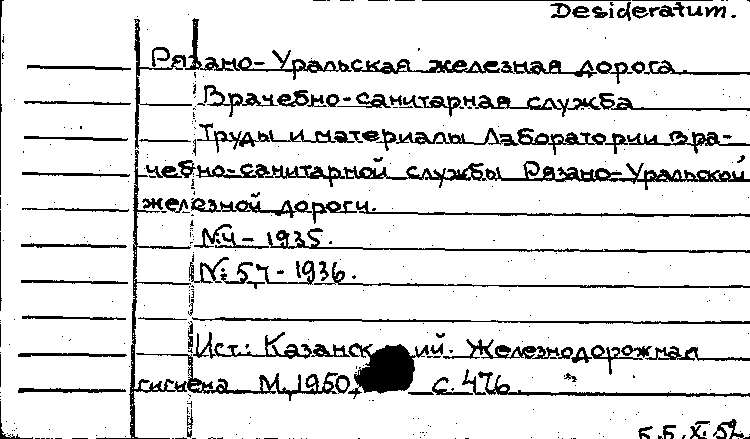 Desideratum.
Рязано-Уральская железная дорога.
Врачебно-санитарная служба
Труды и материалы Лаборатории вра-
чебно-санитарной службы Рязано-Уральской
железной дороги.
№4 - 1935.
№ 5,7 - 1936.
Ист.: Казанский. Железнодорожная
гигиена М., 1950, с. 476.
Б.Б. XI.52